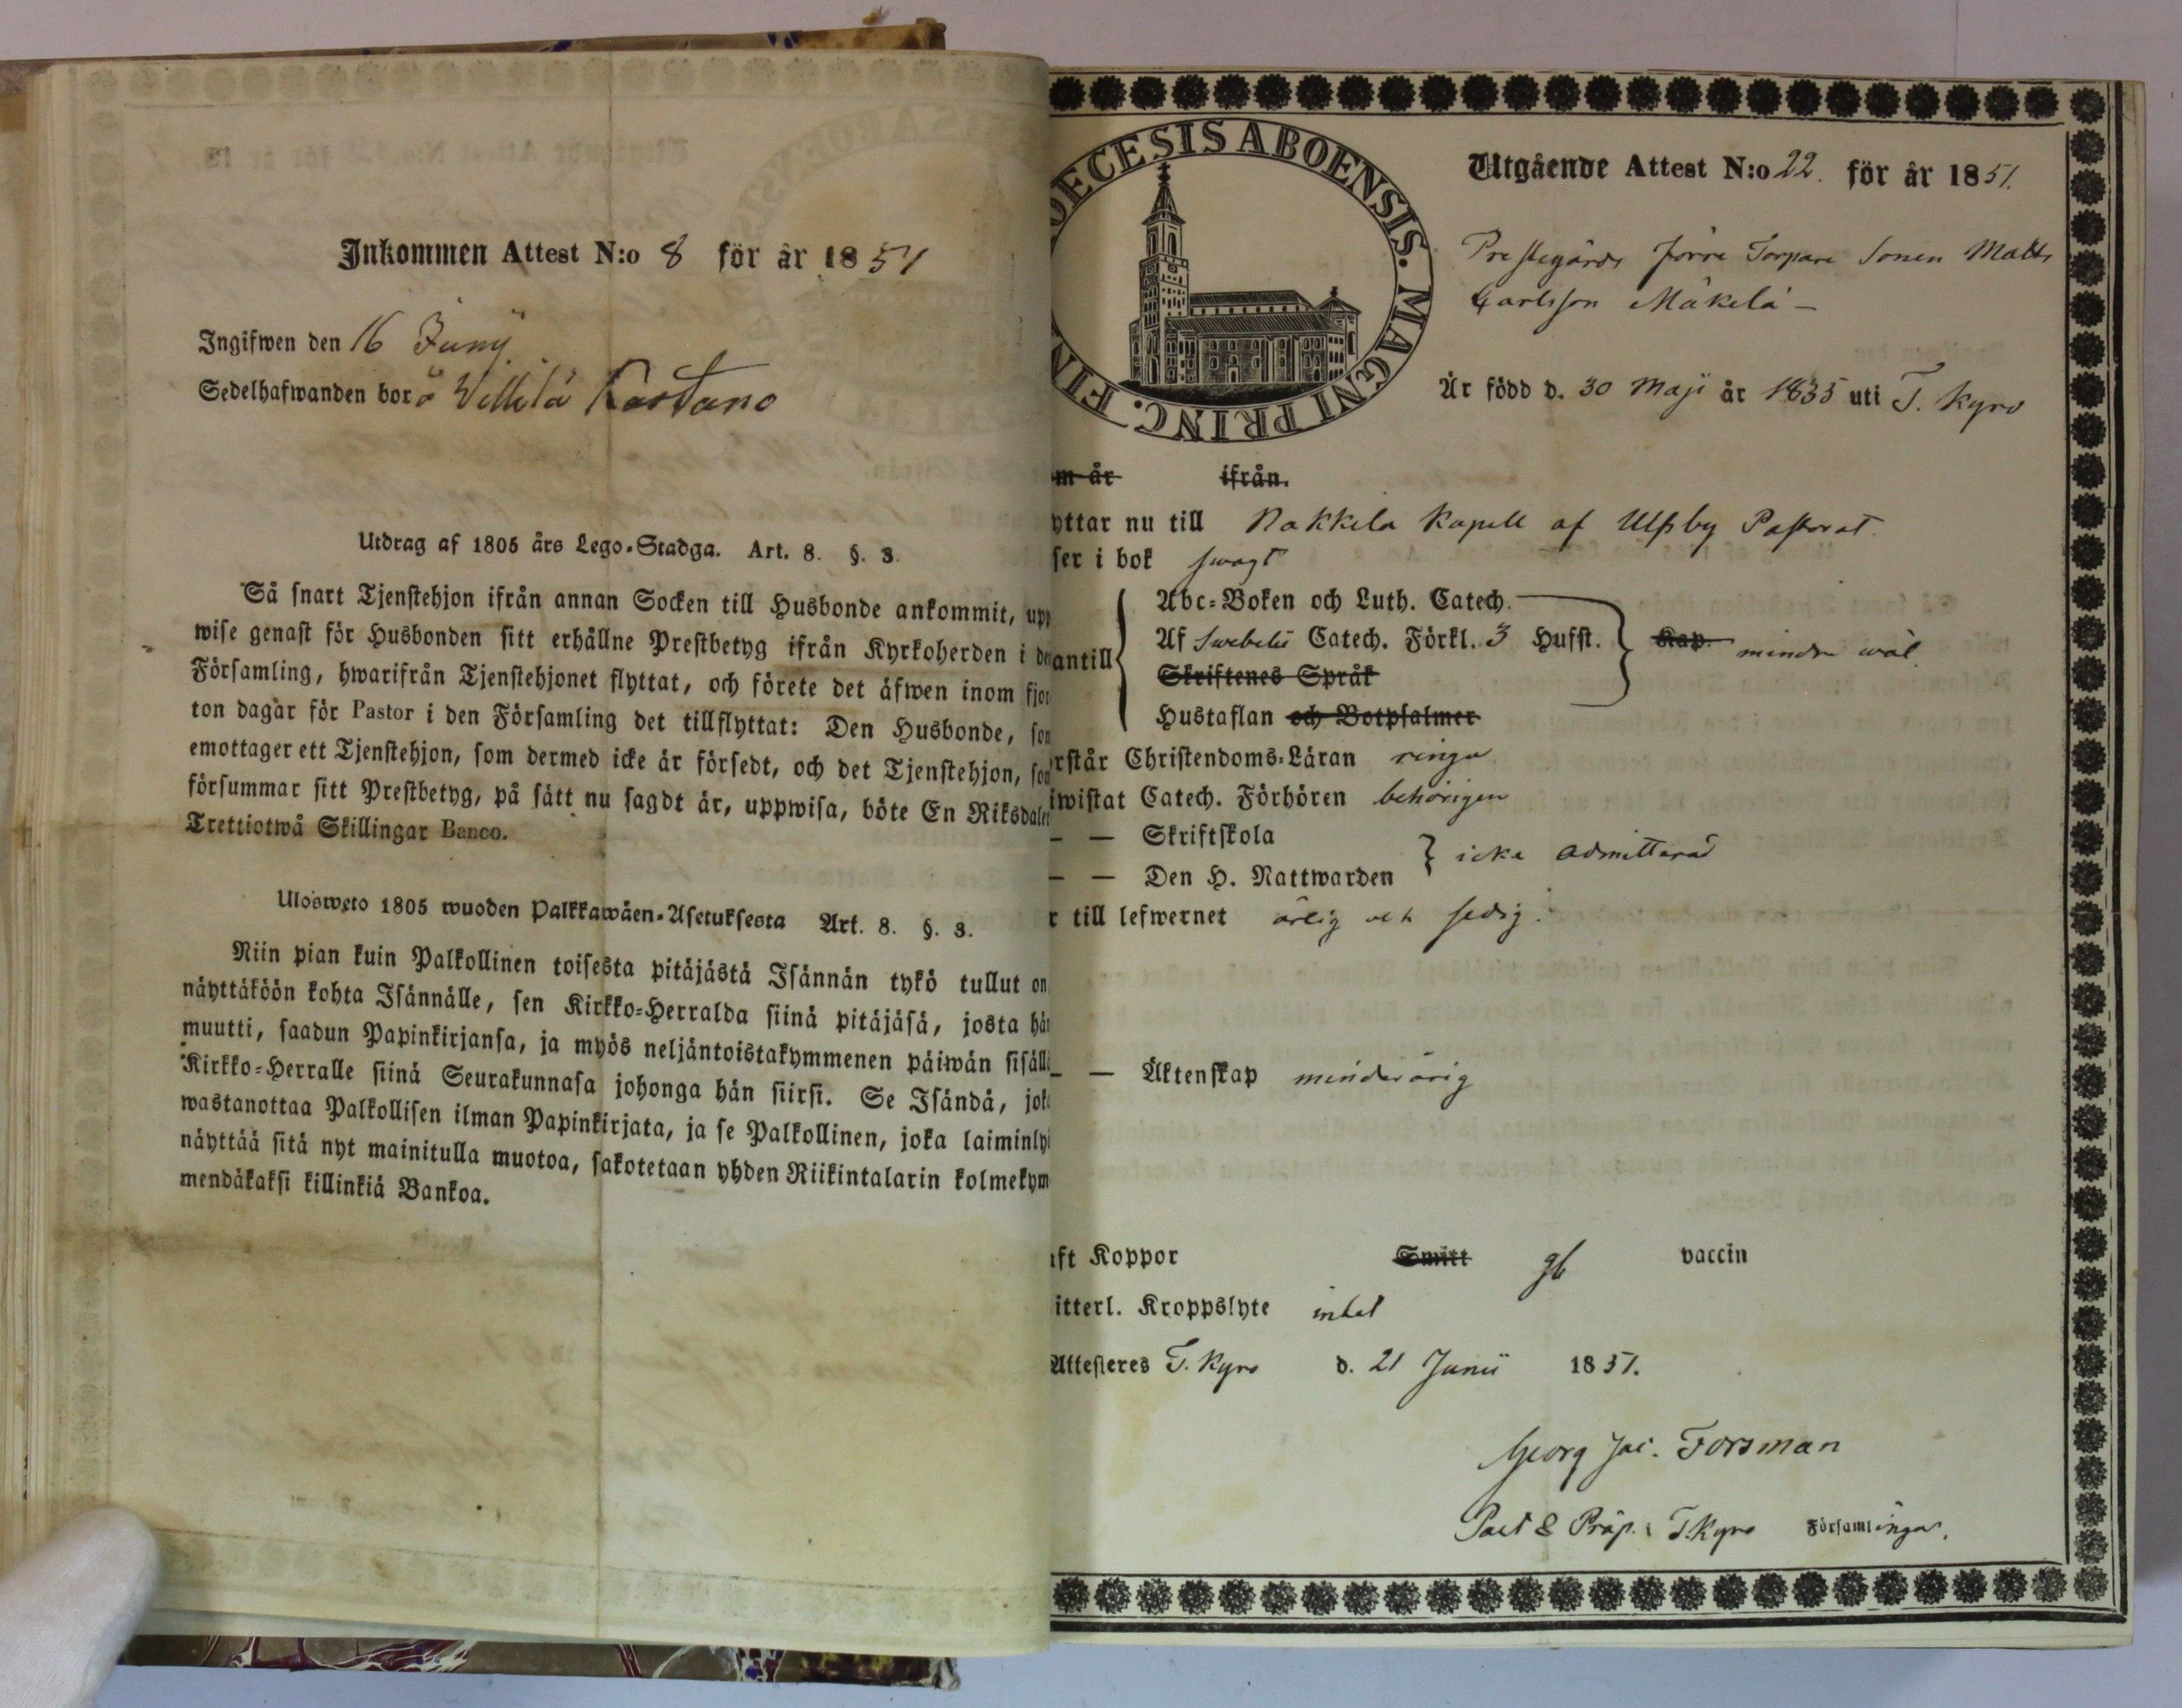 Inkommen Attest N:o 8 för år 1851
Ingifwen den 16 Junij
Sedelhafwanden bor å Villilä Kartano
Utdrag af 1805 års Lego-Stadga. Art. 8. §. 3.
Så snart Tjenstehjon ifrån annan Socken till Husbonde ankommit, upp
wise genast för Husbonden sitt erhållne Prestbetyg ifrån Kyrkoherden i de
Församling, hwarifrån Tjenstehjonet flyttat, och förete det äfwen inom fjor
ton dagar för Pastor i den Församling det tillflyttat: Den Husbonde, som
emottager ett Tjenstehjon, som dermed icke är försedt, och det Tjenstehjon, som
försummar sitt Prestbetyg, på sätt nu sagdt är, uppwisa, böte En Riksdaler
Trettiotwå Skillingar Banco.
Ulosweto 1805 wuoden Palkkawäen-Asetuksesta Art. 8. §. 3.
Niin pian kuin Palkollinen toisesta pitäjästä Isännän tykö tullut on
näyttäköön kohta Isännälle, sen Kirkko-Herralda siinä pitäjäsä, josta hän
muutti, saadun Papinkirjansa, ja myös neljäntoistakymmenen päiwän sisäll
Kirkko-Herralle siinä Seurakunnasa johonga hän siirsi. Se Isändä, joka
wastanottaa Palkollisen ilman Papinkirjata, ja se Palkollinen, joka laiminly
näyttää sitä nyt mainitulla muotoa, sakotetaan yhden Riikintalarin kolmekym
mendäkaksi killinkiä Bankoa.
OECESIS ABOENSIS. MAGNI PRINC. FIN
Utgående Attest N:o 22. för år 1851.
Prestegårds förra Torpare Sonen Matts
Carlsson Mäkelä -
Är född d. 30 Maji år 1835 uti T. Kyro
m år ifrån.
yttar nu till Nakkila Kapell af Ulfsby Pastorat.
ser i bok swagt
antill Abc-Boken och Luth. Catech.
Af Swebelii Catech. Förkl. 3 Hufst. Kap. mindre wäl.
Skriftenes Språk
Hustaflan och Botpsalmer
rstår Christendoms-Läran ringa
iwistat Catech. Förhören behörigen
— — Skriftskola
— — Den H. Nattwarden } icke admitterad
r till lefwernet ärlig och sedig.
— — Äktenskap minderårig
ft Koppor Smitt gl vaccin
itterl. Kroppslyte intet
Attesteres T. Kyro d. 21 Junii 1851.
Georg Jac. Forsman
Past & Präp. i T. Kyro Församlingar.